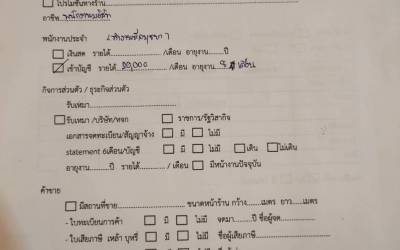 ☐ โปรโมชั่นทางร้าน
อาชีพ พนักงานบริษัท
พนักงานประจำ
☐ เงินสด รายได้............/เดือน อายุงาน........ปี
☑ เข้าบัญชี รายได้ 20,000 /เดือน อายุงาน 8 เดือน
กิจการส่วนตัว / ธุระกิจส่วนตัว
รับเหมา................
☐ รับเหมา /บริษัท/หจก ☐ ราชการ/รัฐวิสากิจ
เอกสารจดทะเบียน/สัญญาจ้าง ☐ มี ☐ ไม่มี
statement 6เดือน/บัญชี ☐ มี ☐ ไม่มี ☐ เดิน ☐ ไม่เดิน
อายุงาน..........ปี รายได้............/ เดือน ☐ มีหน้างานปัจจุบัน
ค้าขาย
☐ มีสถานที่ขาย.................... ขนาดหน้าร้าน กว้าง......เมตร ยาว......เมตร
- ใบทะเบียนการค้า ☐ มี ☐ ไม่มี จดมา........ปี ชื่อผู้จด............
- ใบเสียภาษี เหล้า บุหรี่ ☐ มี ☐ ไม่มี ชื่อผู้เสียภาษี....................